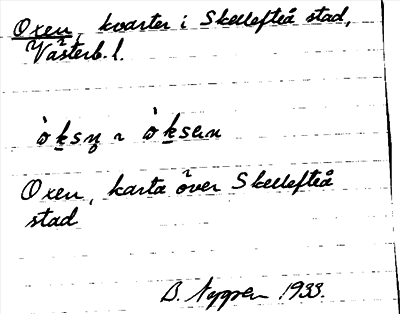 Oxen, kvarter i Skellefteå stad,
Västerb. l.
òksn̥ ~ òksen
Oxen, karta över Skellefteå
stad
B. Nygren 1933.